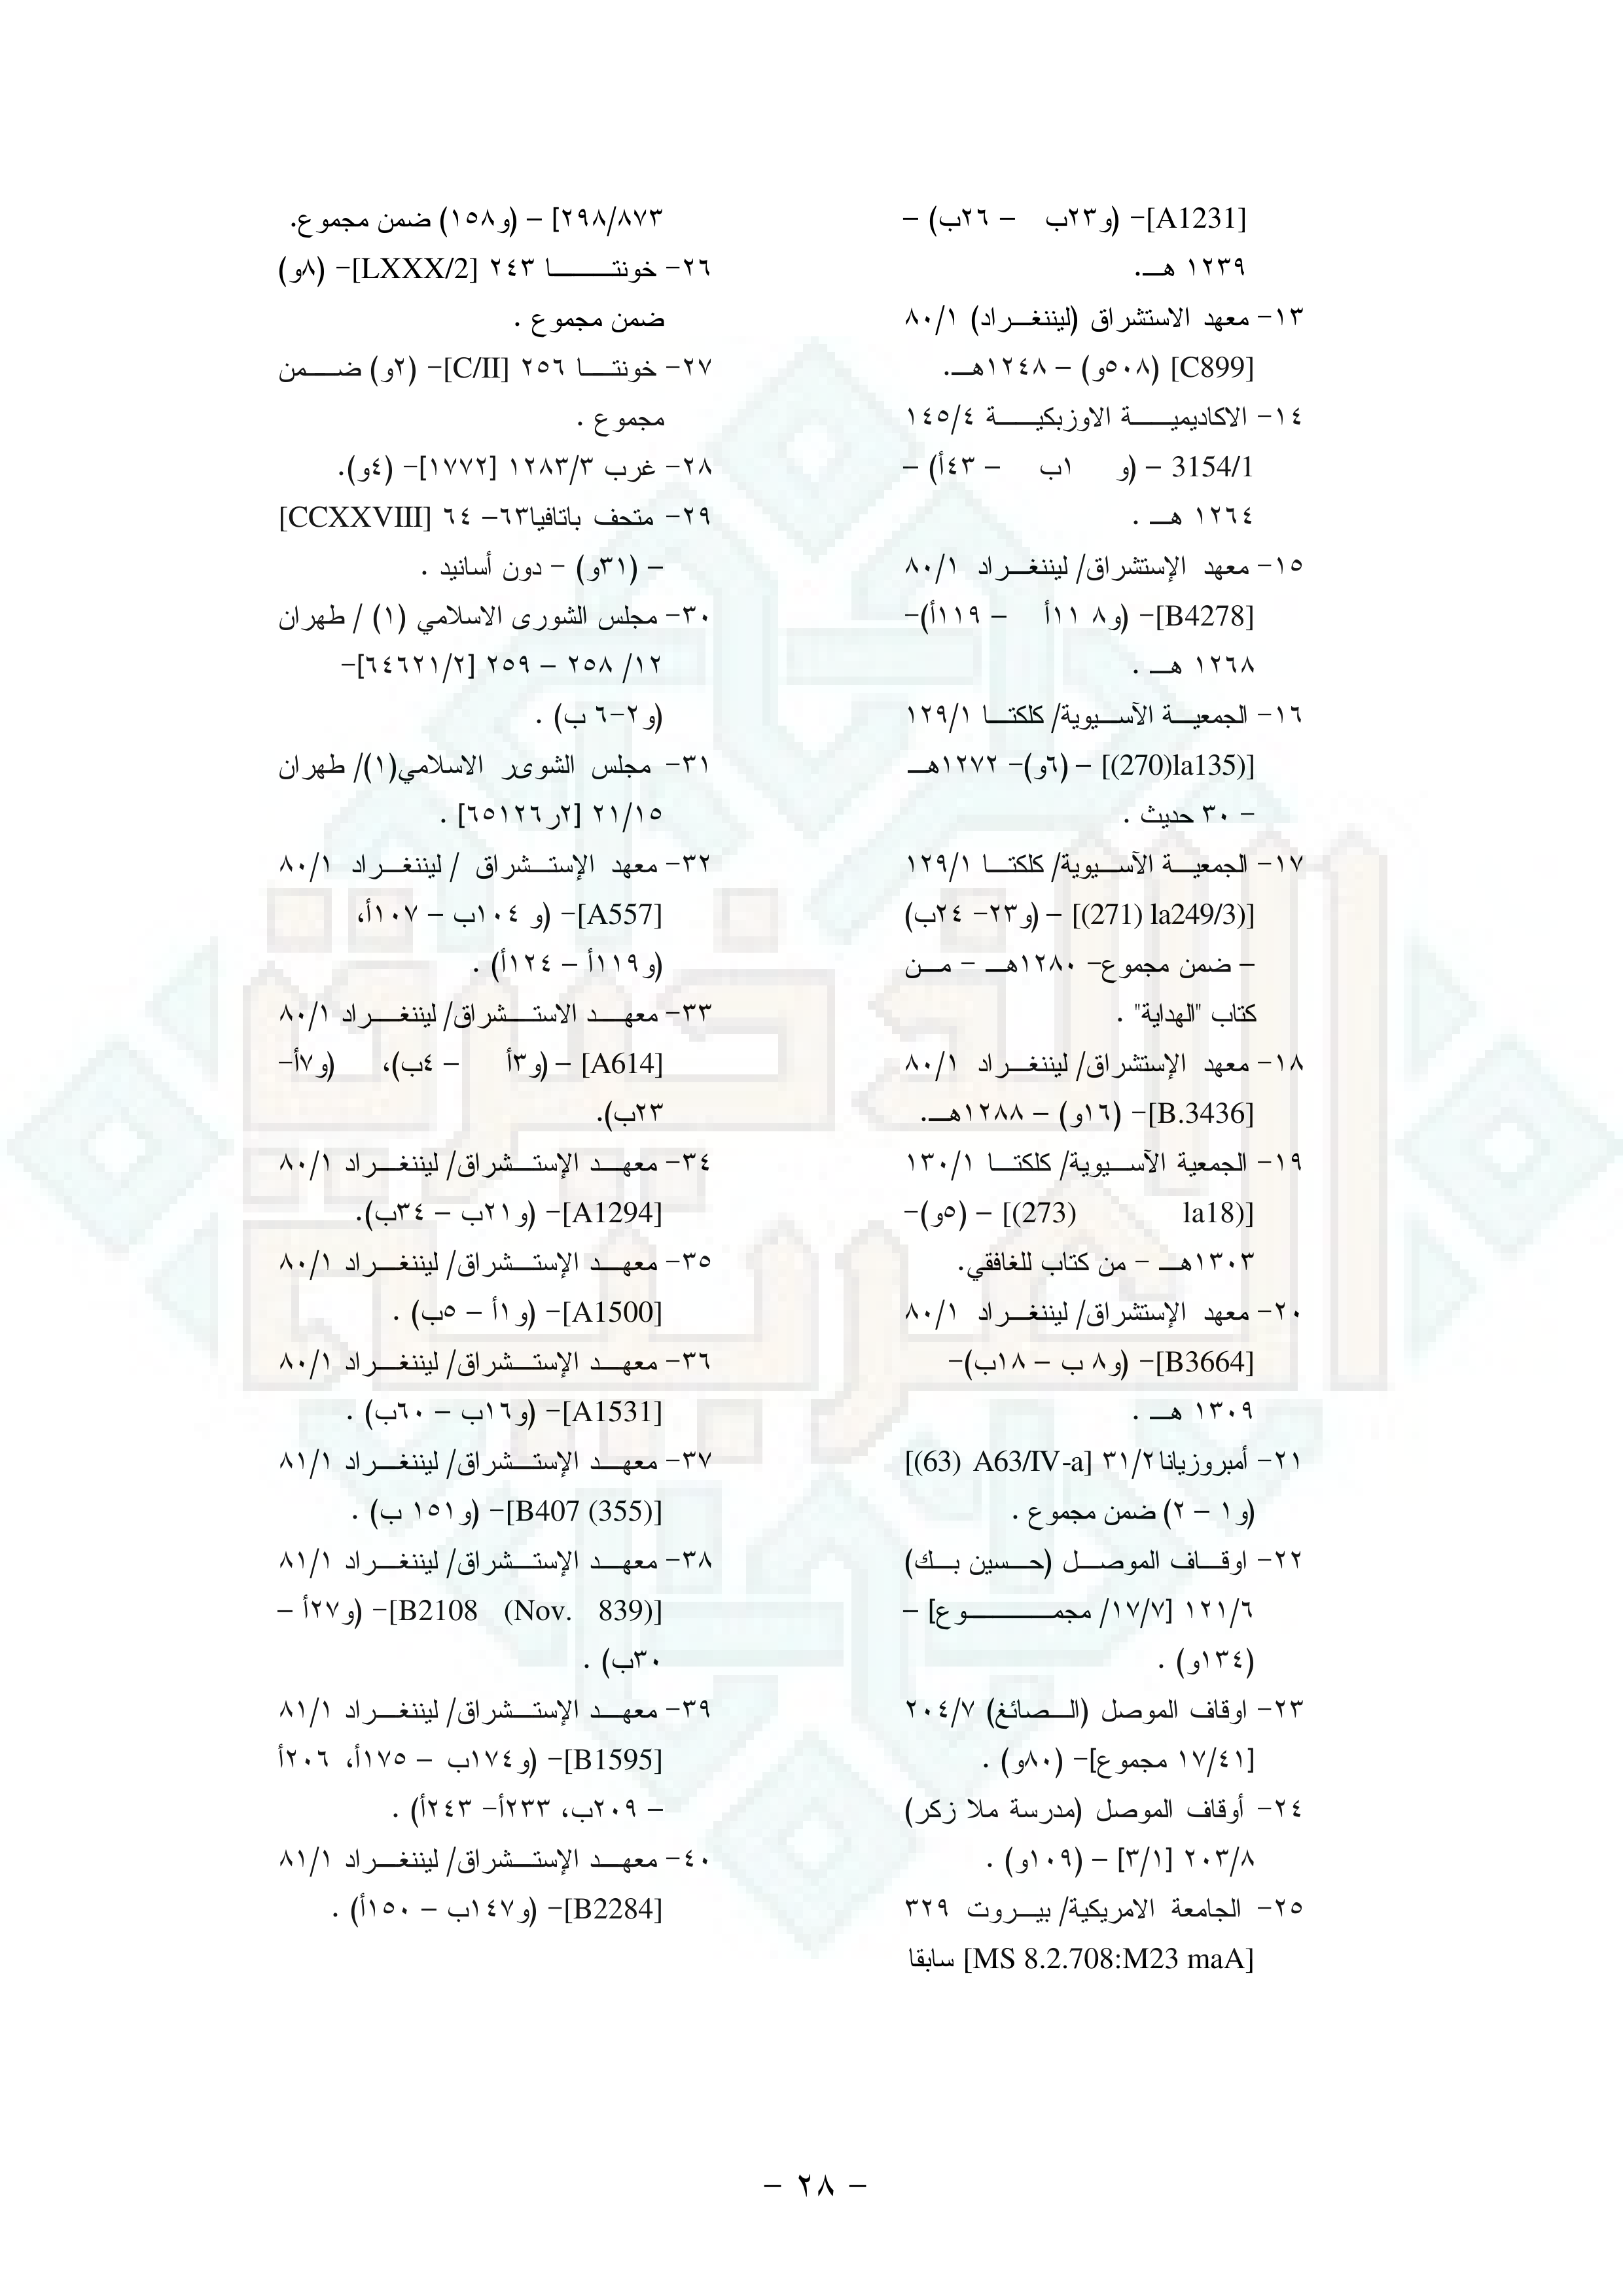 [A1231]- (و٢٣ب – ٢٦ب) –
١٢٣٩ هـ.
١٣- معهد الاستشراق (ليننغراد) ٨٠/١
[C899] (٥٠٨و) – ١٢٤٨هـ.
١٤- الاكاديمية الاوزبكية ١٤٥/٤
3154/1 – (و ١ب – ٤٣أ) –
١٢٦٤ هـ .
١٥- معهد الإستشراق/ ليننغراد ٨٠/١
[B4278]- (و٨ ١١أ – ١١٩أ)-
١٢٦٨ هـ .
١٦- الجمعية الآسيوية/ كلكتا ١٢٩/١
[(270)la135)] – (٦و)- ١٢٧٢هـ
- ٣٠ حديث .
١٧- الجمعية الآسيوية/ كلكتا ١٢٩/١
[(271) la249/3)] – (و٢٣- ٢٤ب)
– ضمن مجموع- ١٢٨٠هـ - من
كتاب "الهداية" .
١٨- معهد الإستشراق/ ليننغراد ٨٠/١
[B.3436]- (١٦و) – ١٢٨٨هـ.
١٩- الجمعية الآسيوية/ كلكتا ١٣٠/١
[(273) la18)] – (٥و)-
١٣٠٣هـ - من كتاب للغافقي.
٢٠- معهد الإستشراق/ ليننغراد ٨٠/١
[B3664]- (و٨ ب – ١٨ب)-
١٣٠٩ هـ .
٢١- أمبروزيانا٣١/٢ [(63) A63/IV-a]
(و١ – ٢) ضمن مجموع .
٢٢- اوقاف الموصل (حسين بك)
١٢١/٦ [١٧/٧/ مجموع] –
(١٣٤و) .
٢٣- اوقاف الموصل (الصائغ) ٢٠٤/٧
[١٧/٤١ مجموع]- (٨٠و) .
٢٤- أوقاف الموصل (مدرسة ملا زكر)
٢٠٣/٨ [٣/١] – (١٠٩و) .
٢٥- الجامعة الامريكية/ بيروت ٣٢٩
[MS 8.2.708:M23 maA] سابقا
٢٩٨/٨٧٣] – (و١٥٨) ضمن مجموع.
٢٦- خونتا ٢٤٣ [LXXX/2]- (٨و)
ضمن مجموع .
٢٧- خونتا ٢٥٦ [C/II]- (٢و) ضمن
مجموع .
٢٨- غرب ١٢٨٣/٣ [١٧٧٢]- (٤و).
٢٩- متحف باتافيا٦٣– ٦٤ [CCXXVIII]
– (٣١و) - دون أسانيد .
٣٠- مجلس الشورى الاسلامي (١) / طهران
١٢/ ٢٥٨ – ٢٥٩ [٦٤٦٢١/٢]-
(و٢-٦ ب) .
٣١- مجلس الشوىر الاسلامي(١)/ طهران
٢١/١٥ [٢ر٦٥١٢٦] .
٣٢- معهد الإستشراق / ليننغراد ٨٠/١
[A557]- (و ١٠٤ب – ١٠٧أ،
(و١١٩أ – ١٢٤أ) .
٣٣- معهد الاستشراق/ ليننغراد ٨٠/١
[A614] – (و٣أ – ٤ب)، (و٧أ-
٢٣ب).
٣٤- معهد الإستشراق/ ليننغراد ٨٠/١
[A1294]- (و٢١ب – ٣٤ب).
٣٥- معهد الإستشراق/ ليننغراد ٨٠/١
[A1500]- (و١أ – ٥ب) .
٣٦- معهد الإستشراق/ ليننغراد ٨٠/١
[A1531]- (و١٦ب – ٦٠ب) .
٣٧- معهد الإستشراق/ ليننغراد ٨١/١
[B407 (355)]- (و١٥١ ب) .
٣٨- معهد الإستشراق/ ليننغراد ٨١/١
[B2108 (Nov. 839)]- (و٢٧أ –
٣٠ب) .
٣٩- معهد الإستشراق/ ليننغراد ٨١/١
[B1595]- (و١٧٤ب – ١٧٥أ، ٢٠٦أ
– ٢٠٩ب، ٢٣٣أ- ٢٤٣أ) .
٤٠- معهد الإستشراق/ ليننغراد ٨١/١
[B2284]- (و١٤٧ب – ١٥٠أ) .
– ٢٨ –